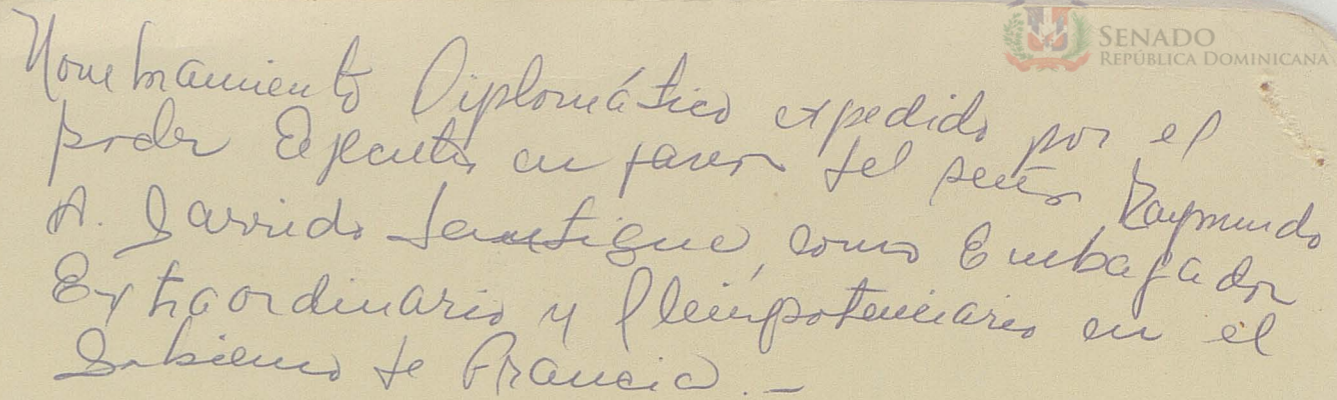 SENADO
REPÚBLICA DOMINICANA
Nombramiento Diplomático expedido por el
poder Ejecutivo en favor del señor Raymundo
A. Garrido, como Embajador
Extraordinario y Plenipotenciario en el
Gobierno de Francia. –